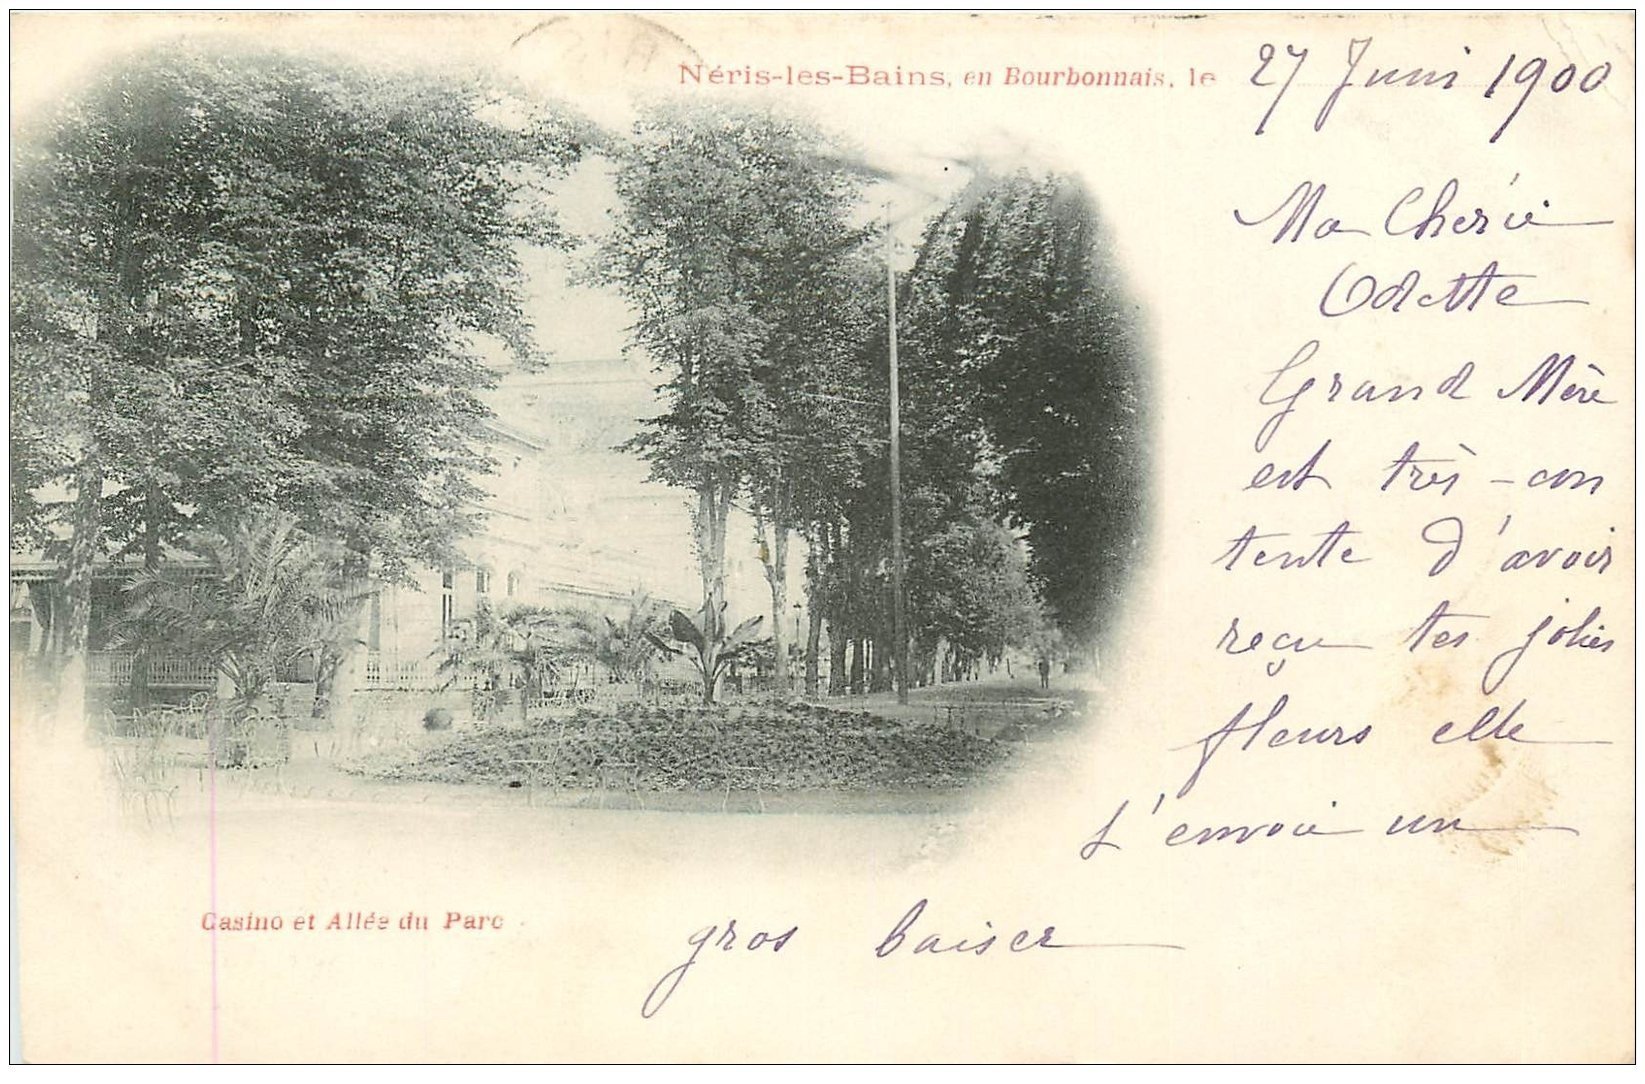 Néris-les-Bains, en Bourbonnais, le 27 Juin 1900
Ma Chérie
Odette
Grand Mère
est très-con
tente d'avoir
reçu tes jolies
fleurs elle
t'envoie un
gros baiser
Casino et Allée du Parc